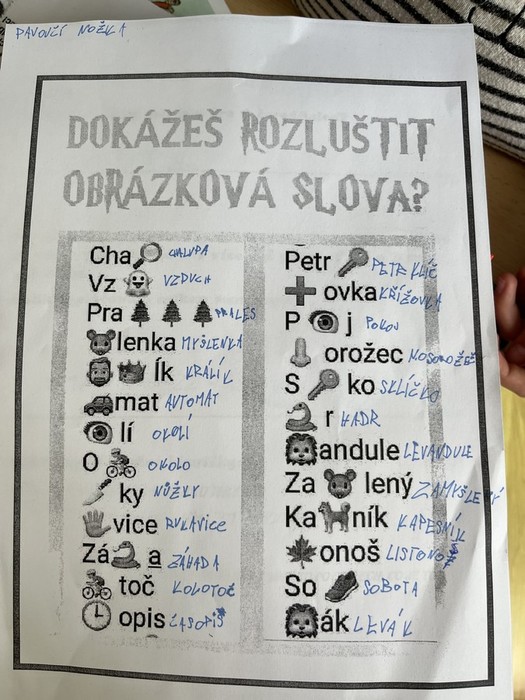 PAVOUČÍ NOŽKA
DOKÁŽEŠ ROZLUŠTIT
OBRÁZKOVÁ SLOVA?
Cha CHALUPA
Vz VZDUCH
Pra PRALES
lenka MYŠLENKA
ík KRÁLÍK
mat AUTOMAT
lí OKOLÍ
O OKOLO
ky NŮŽKY
vice RUKAVICE
Zá a ZÁHADA
toč KOLOTOČ
opis ČASOPIS
Petr PETRKLÍČ
ovka KŘÍŽOVKA
P j POKOJ
orožec NOSOROŽEC
S ko SKLÍČKO
r HADR
andule LEVANDULE
Za lený
Ka ník KAPESNÍK
onoš LISTONOŠ
So SOBOTA
ák LEVÁK